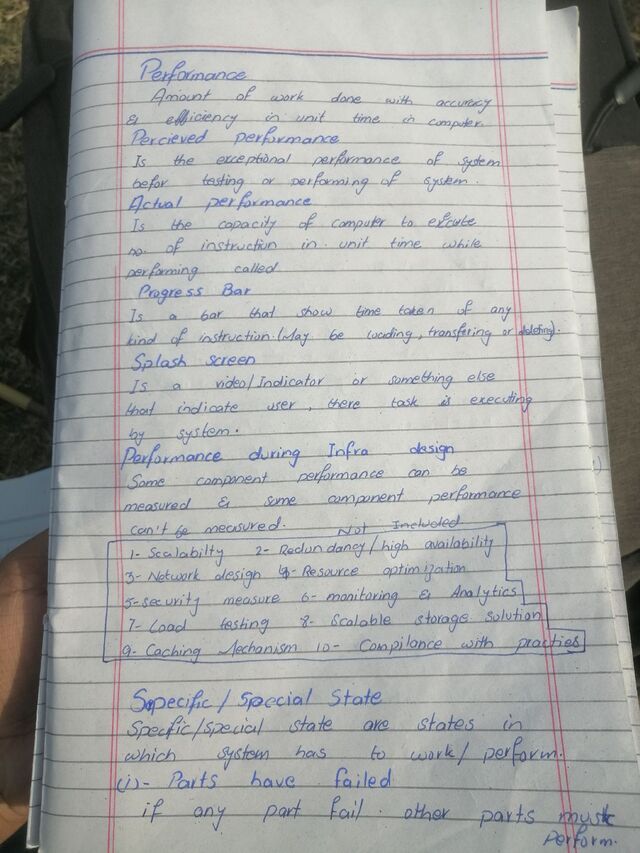 Performance
Amount of work done with accuracy
& efficiency in unit time in computer.
Percieved performance
Is the exceptional performance of system
befor testing or performing of system.
Actual performance
Is the capacity of computer to excute
no. of instruction in unit time while
performing called
Progress Bar
Is a bar that show time taken of any
kind of instruction. (May be loading, transfering or deleting).
Splash screen
Is a video/Indicator or something else
that indicate user, there task is executing
by system.
Performance during Infra design
Some component performance can be
measured & some component performance
can't be measured. Not Included
1- Scalabilty 2- Redundancy/high availability
3- Network design 4- Resource optimization
5- security measure 6- monitoring & Analytics
7- Load testing 8- Scalable storage solution
9- Caching Mechanism 10- Compilance with practies
Specific/Special State
Specific/special state are states in
which system has to work/perform.
(i)- Parts have failed
if any part fail other parts must
perform.